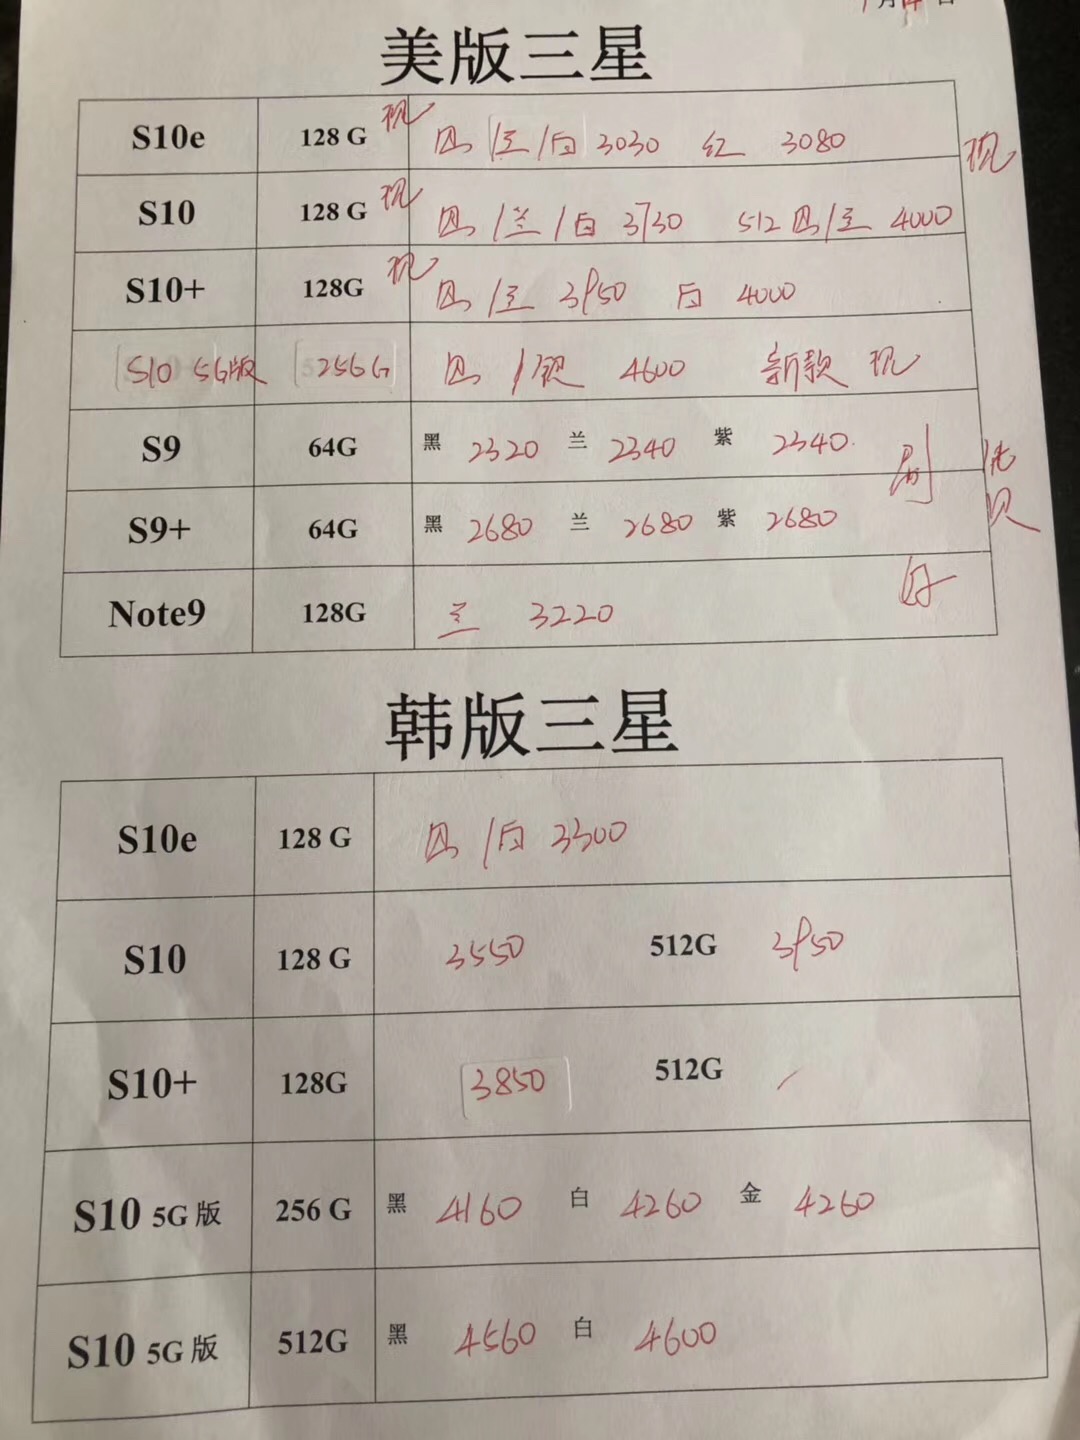 月14日
美版三星
S10e 128 G 现 黑/兰/白 3030 红 3080 现
S10 128 G 现 黑/兰/白 3730 512黑/兰 4000
S10+ 128G 现 黑/兰 3950 白 4000
S10 5G版 256G 黑/银 4600 新款 现
S9 64G 黑 2320 兰 2340 紫 2340
S9+ 64G 黑 2680 兰 2680 紫 2680
Note9 128G 兰 3220
韩版三星
S10e 128 G 黑/白 3300
S10 128 G 3550 512G 3950
S10+ 128G 3850 512G /
S10 5G 版 256 G 黑 4160 白 4260 金 4260
S10 5G 版 512G 黑 4560 白 4600